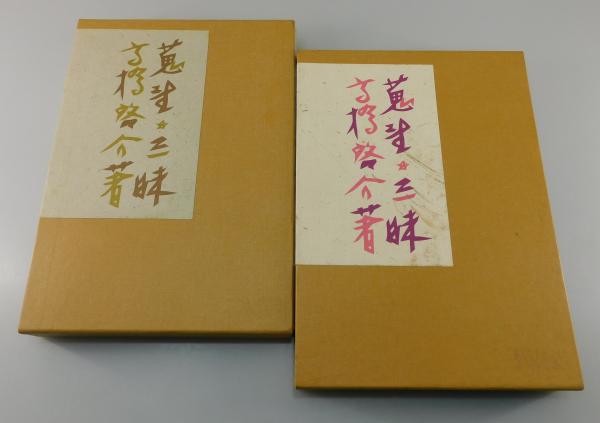 蒐☆三昧
高橋啓介著
蒐☆三昧
高橋啓介著